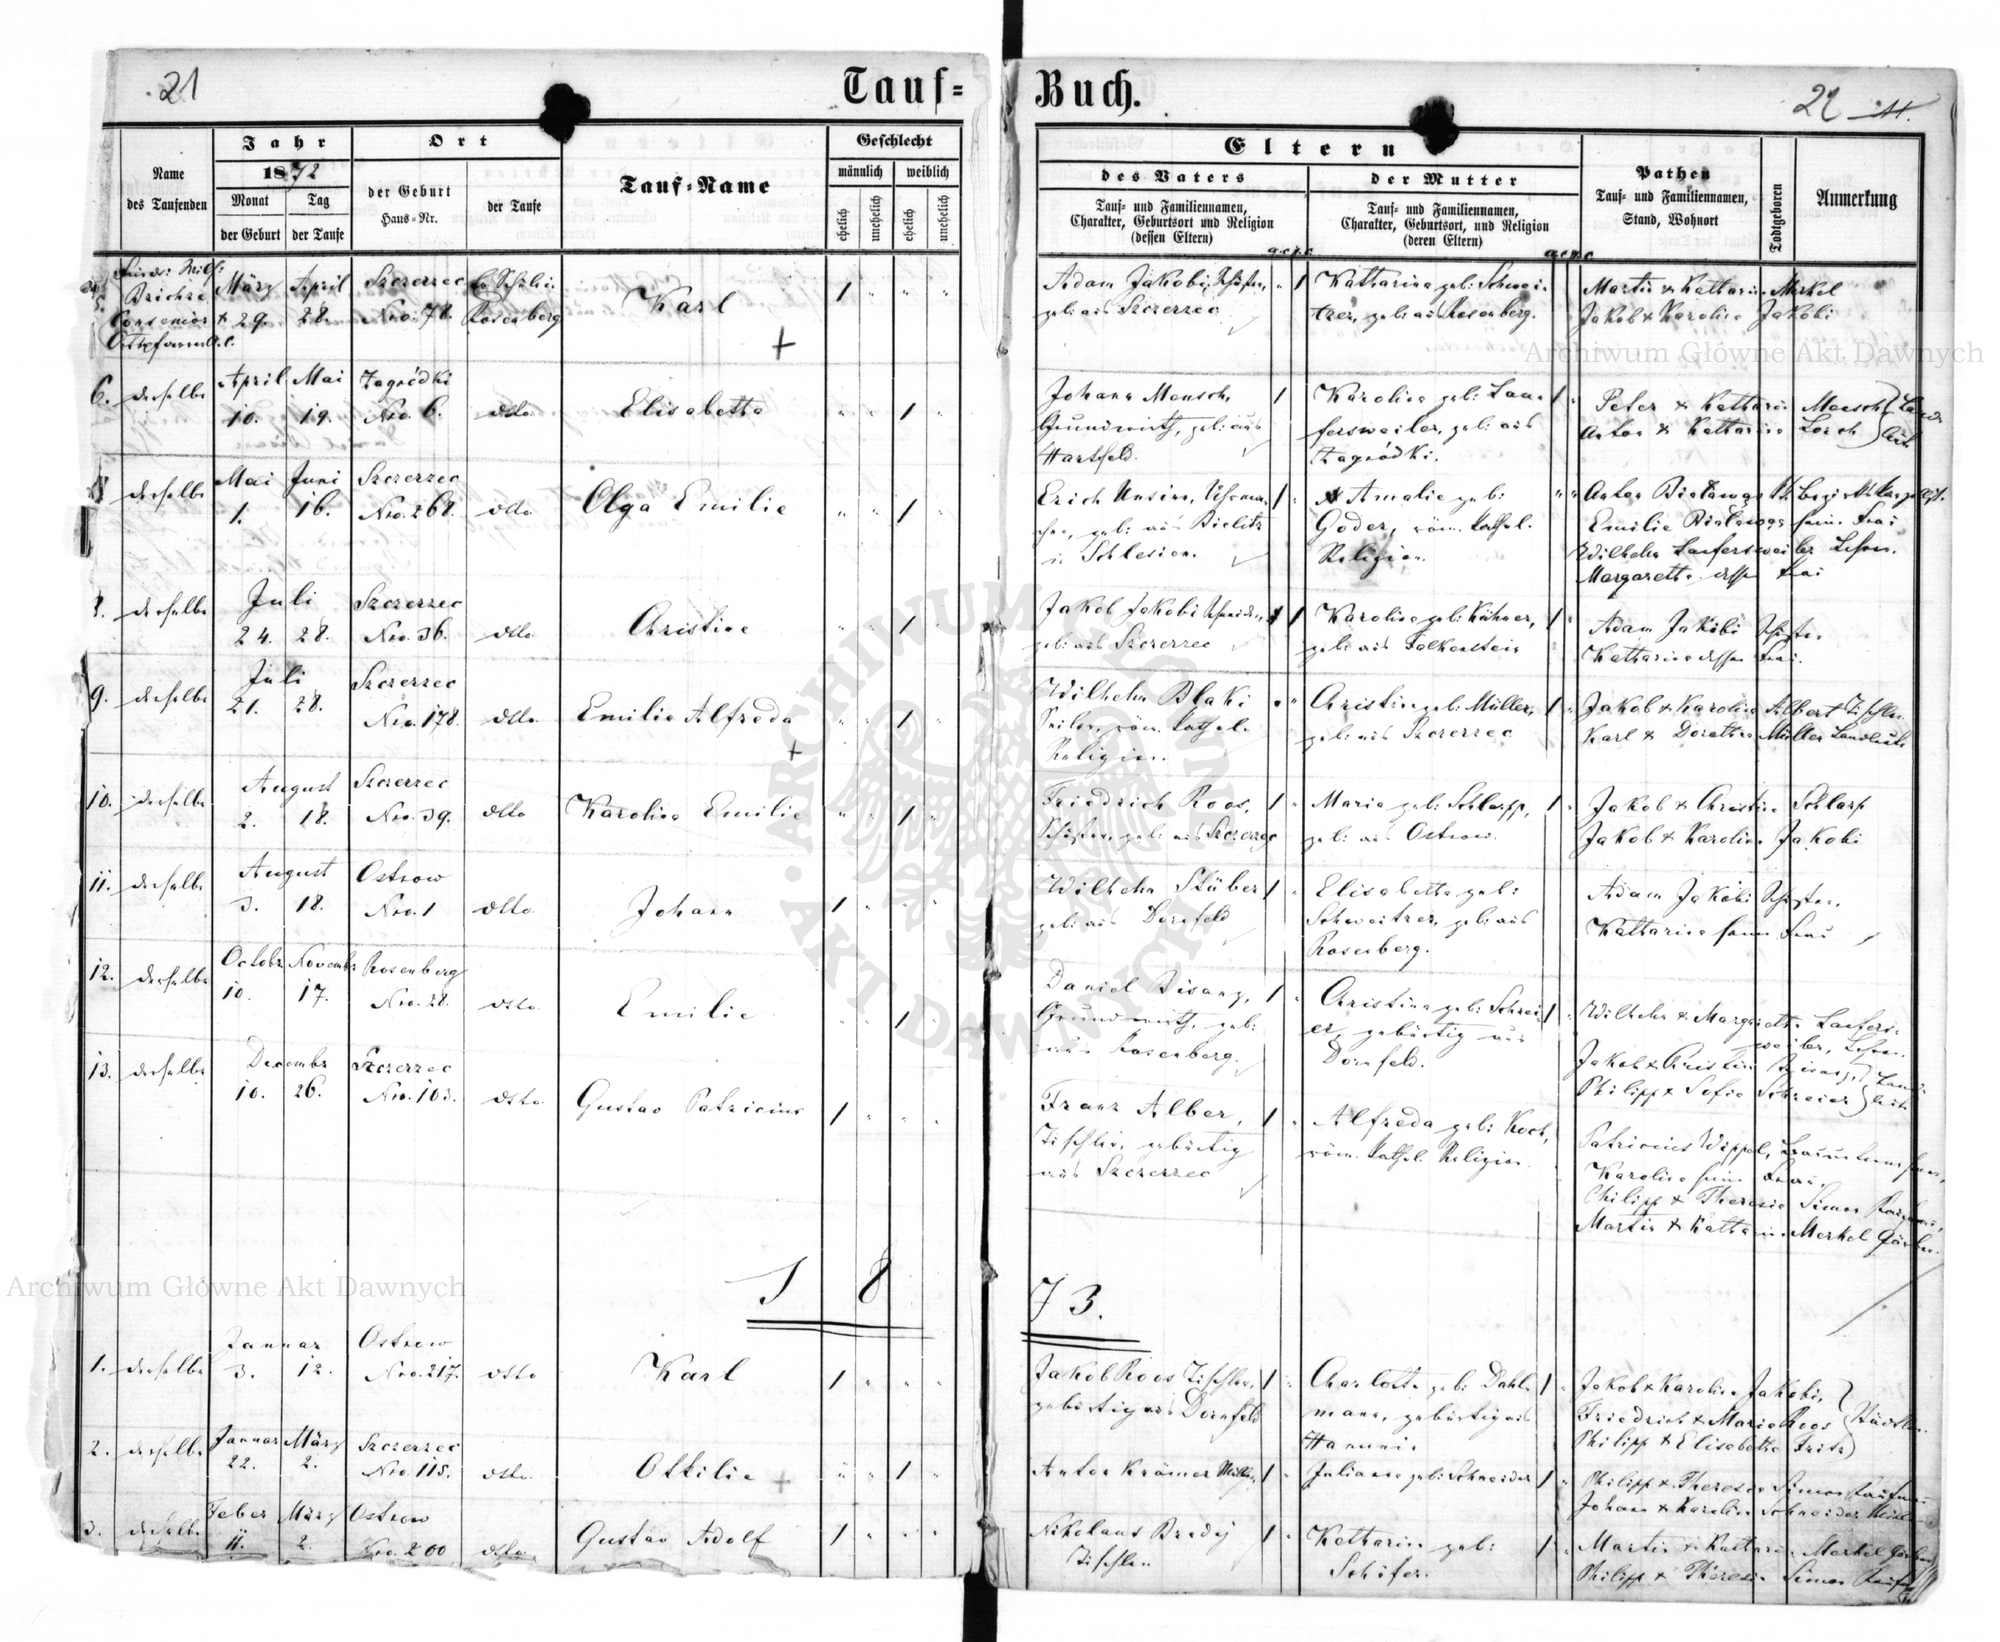 21
Tauf-
Buch.
22
Name
des Taufenden
Jahr
1872
Monat
der Geburt
Tag
der Taufe
Ort
der Geburt
Haus-Nr.
der Taufe
Tauf-Name
Geschlecht
männlich
weiblich
ehelich
unehelich
ehelich
unehelich
Eltern
des Vaters
Tauf- und Familiennamen,
Charakter, Geburtsort und Religion
(dessen Eltern)
der Mutter
Tauf- und Familiennamen,
Charakter, Geburtsort, und Religion
(deren Eltern)
Pathen
Tauf- und Familiennamen,
Stand, Wohnort
Todtgeboren
Anmerkung
März April Szczerzec
29. 28. Nro. 78. Rosenberg
Karl
1
Adam Jakobi,
geb: aus Szczerzec
Katharina geb: Schwei-
tzer, geb: aus Rosenberg.
Martin & Katharina Merkel
Jakob & Karolina Jakobi
6. derselbe
April Mai Zagródki
10. 19. Nro. 6. dtto
Elisabetha
1
Johann Mensch,
Grundwirth, geb: aus
Hartfeld.
Karolina geb: Lau-
fersweiler, geb: aus
Zagródki.
Peter & Katharina Mensch
Anton & Katharina Lorch
derselbe
Mai Juni Szczerzec
1. 16. Nro. 268. dtto
Olga Emilie
1
Erich
geb: aus Bielitz
in Schlesien.
Amalie geb:
Goder, röm. kathol.
Religion.
Anton
Emilie
Wilhelm Laufersweiler
Margaretha dessen Frau
derselbe
Juli Szczerzec
24. 28. Nro. 36. dtto
Christine
1
Jakob Jakobi
geb: aus Szczerzec
Karolina geb: Kühner,
geb: aus Falkenstein
Adam Jakobi
Katharina dessen Frau.
9. derselbe
Juli Szczerzec
21. 28. Nro. 178. dtto
Emilie Alfreda
1
Wilhelm Blaki
röm. kathol.
Religion.
Christine geb: Müller,
geb: aus Szczerzec
Jakob & Karolina Albert Tischler
Karl & Dorothea Müller Landleute
10. derselbe
August Szczerzec
2. 18. Nro. 39. dtto
Karolina Emilie
1
Friedrich Roos,
geb: aus Szczerzec
Maria geb: Schlapp,
geb: aus Ostrow.
Jakob & Christine Schlapp
Jakob & Karolina Jakobi
11. derselbe
August Ostrow
3. 18. Nro. 1 dtto
Johann
1
Wilhelm Stüber
geb: aus Dornfeld
Elisabetha geb:
Schweitzer, geb: aus
Rosenberg.
Adam Jakobi
Katharina seine Frau
12. derselbe
October November Rosenberg
10. 17. Nro. 28. dtto
Emilie
1
Daniel Bisanz,
Grundwirth, geb:
aus Rosenberg.
Christina geb: Schrei-
er, gebürtig aus
Dornfeld.
Wilhelm & Margaretha Laufers-
weiler,
Jakob & Christina Bisanz
Philipp & Sofia Schreier
13. derselbe
December Szczerzec
10. 26. Nro. 103. dtto
Gustav Patricius
1
Franz Alber,
Tischler, gebürtig
aus Szczerzec
Alfreda geb: Koch,
röm. kathol. Religion.
Patricius Wippel,
Karolina seine Frau.
Philipp & Theresia Simon
Martin & Katharina Merkel Gärber.
18
73.
1. derselbe
Januar Ostrow
3. 12. Nro. 217. dtto
Karl
1
Jakob Roos Tischler,
gebürtig aus Dornfeld
Charlotte geb: Dahl-
mann, gebürtig aus
Hanunin
Jakob & Karolina Jakobi,
Friedrich & Maria Roos
Philipp & Elisabetha Fritz
2. derselbe
Januar März Szczerzec
22. 2. Nro. 115. dtto
Ottilie
1
Anton Krämer
Julianna geb: Schneider
Philipp & Theresia Simon
Johann & Karolina Schneider
3. derselbe
Feber März Ostrow
11. 2. Nro. 200 dtto
Gustav Adolf
1
Nikolaus Bredy
Tischler
Katharina geb:
Schäfer.
Martin & Katharina Merkel Gärber
Philipp & Theresia Simon
Archiwum Główne Akt Dawnych
Archiwum Główne Akt Dawnych
ARCHIWUM GŁÓWNE AKT DAWNYCH